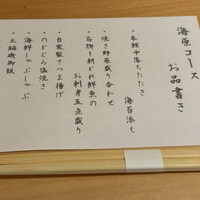 海原コース
お品書き
・本鮪中落ちたたき
海苔添え
・焼き野菜盛り合わせ
・名物！朝どれ鮮魚の
お刺身五点盛り
・自家製さつま揚げ
・のどぐろ塩焼き
・海鮮しゃぶしゃぶ
・土鍋御飯